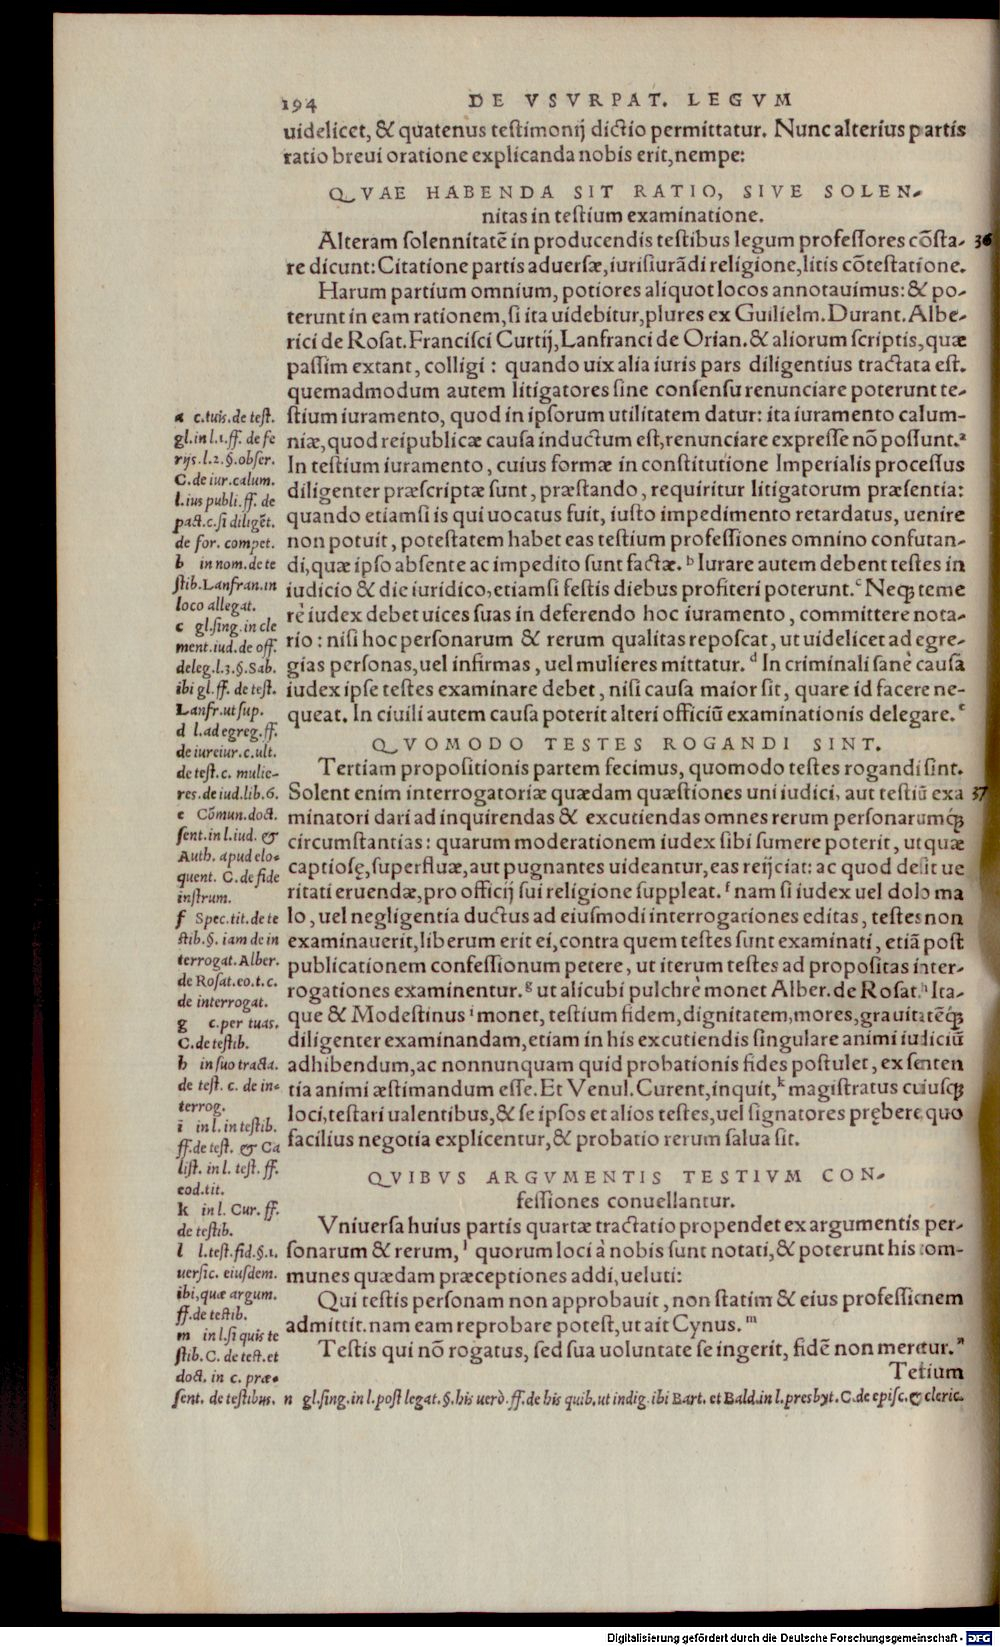 194 DE VSVRPAT. LEGVM
uidelicet, & quatenus testimonij dictio permittatur. Nunc alterius partis
ratio breui oratione explicanda nobis erit, nempe:
QVAE HABENDA SIT RATIO, SIVE SOLEN-
nitas in testium examinatione.
Alteram solennitatē in producendis testibus legum professores cōsta- 36
re dicunt: Citatione partis aduersæ, iurisiurādi religione, litis cōtestatione.
Harum partium omnium, potiores aliquot locos annotauimus: & po-
terunt in eam rationem, si ita uidebitur, plures ex Guilielm. Durant. Albe-
rici de Rosat. Francisci Curtij, Lanfranci de Orian. & aliorum scriptis, quæ
passim extant, colligi: quando uix alia iuris pars diligentius tractata est.
quemadmodum autem litigatores sine consensu renunciare poterunt te-
stium iuramento, quod in ipsorum utilitatem datur: ita iuramento calum-
niæ, quod reipublicæ causa inductum est, renunciare expresse nō possunt.ª
In testium iuramento, cuius formæ in constitutione Imperialis processus
diligenter præscriptæ sunt, præstando, requiritur litigatorum præsentia:
quando etiamsi is qui uocatus fuit, iusto impedimento retardatus, uenire
non potuit, potestatem habet eas testium professiones omnino confutan-
di, quæ ipso absente ac impedito sunt factæ.ᵇ Iurare autem debent testes in
iudicio & die iuridico, etiamsi festis diebus profiteri poterunt.ᶜ Neqꝫ teme
rè iudex debet uices suas in deferendo hoc iuramento, committere nota-
rio: nisi hoc personarum & rerum qualitas reposcat, ut uidelicet ad egre-
gias personas, uel infirmas, uel mulieres mittatur.ᵈ In criminali sanè causā
iudex ipse testes examinare debet, nisi causa maior sit, quare id facere ne-
queat. In ciuili autem causa poterit alteri officiū examinationis delegare.ᵉ
QVOMODO TESTES ROGANDI SINT.
Tertiam propositionis partem fecimus, quomodo testes rogandi sint.
Solent enim interrogatoriæ quædam quæstiones uni iudici, aut testiū exa 37
minatori dari ad inquirendas & excutiendas omnes rerum personarumqꝫ
circumstantias: quarum moderationem iudex sibi sumere poterit, ut quæ
captiosę, superfluæ, aut pugnantes uideantur, eas reijciat: ac quod desit ue
ritati eruendæ, pro officij sui religione suppleat.ᶠ nam si iudex uel dolo ma
lo, uel negligentia ductus ad eiusmodi interrogationes editas, testes non
examinauerit, liberum erit ei, contra quem testes sunt examinati, etiā post
publicationem confessionum petere, ut iterum testes ad propositas inter-
rogationes examinentur.ᵍ ut alicubi pulchrè monet Alber. de Rosat.ʰ Ita-
que & Modestinusⁱ monet, testium fidem, dignitatem, mores, grauitatēqꝫ
diligenter examinandam, etiam in his excutiendis singulare animi iudiciū
adhibendum, ac nonnunquam quid probationis fides postulet, ex senten
tia animi æstimandum esse. Et Venul. Curent, inquit,ᵏ magistratus cuiusqꝫ
loci, testari ualentibus, & se ipsos et alios testes, uel signatores prębere, quo
facilius negotia explicentur, & probatio rerum salua sit.
QVIBVS ARGVMENTIS TESTIVM CON-
fessiones conuellantur.
Vniuersa huius partis quartæ tractatio propendet ex argumentis per-
sonarum & rerum,ˡ quorum loci à nobis sunt notati, & poterunt his com-
munes quædam præceptiones addi, ueluti:
Qui testis personam non approbauit, non statim & eius professionem
admittit. nam eam reprobare potest, ut ait Cynus.ᵐ
Testis qui nō rogatus, sed sua uoluntate se ingerit, fidē non meretur.ⁿ
Tetium
a c. tuis. de test.
gl. in l. 1. ff. de fe
rijs. l. 2. §. obser.
C. de iur. calum.
l. ius publi. ff. de
pact. c. si diligēt.
de for. compet.
b in nom. de te
stib. Lanfran. in
loco allegat.
c gl. sing. in cle
ment. iud. de off.
deleg. l. 3. §. Sab.
ibi gl. ff. de test.
Lanfr. ut sup.
d l. ad egreg. ff.
de iureiur. c. ult.
de test. c. mulie-
res. de iud. lib. 6.
e Cōmun. doct.
sent. in l. iud. &
Auth. apud elo-
quent. C. de fide
instrum.
f Spec. tit. de te
stib. §. iam de in
terrogat. Alber.
de Rosat. eo. t. c.
de interrogat.
g c. per tuas.
C. de testib.
h in suo tracta.
de test. c. de in-
terrog.
i in l. in testib.
ff. de test. & Ca
list. in l. test. ff.
eod. tit.
k in l. Cur. ff.
de testib.
l l. test. fid. §. 1.
uersic. eiusdem.
ibi, quæ argum.
ff. de testib.
m in l. si quis te
stib. C. de test. et
doct. in c. præ-
sent. de testibus. n gl. sing. in l. post legat. §. his uerò. ff. de his quib. ut indig. ibi Bart. et Bald. in l. presbyt. C. de episc. & cleric.
Digitalisierung gefördert durch die Deutsche Forschungsgemeinschaft - DFG